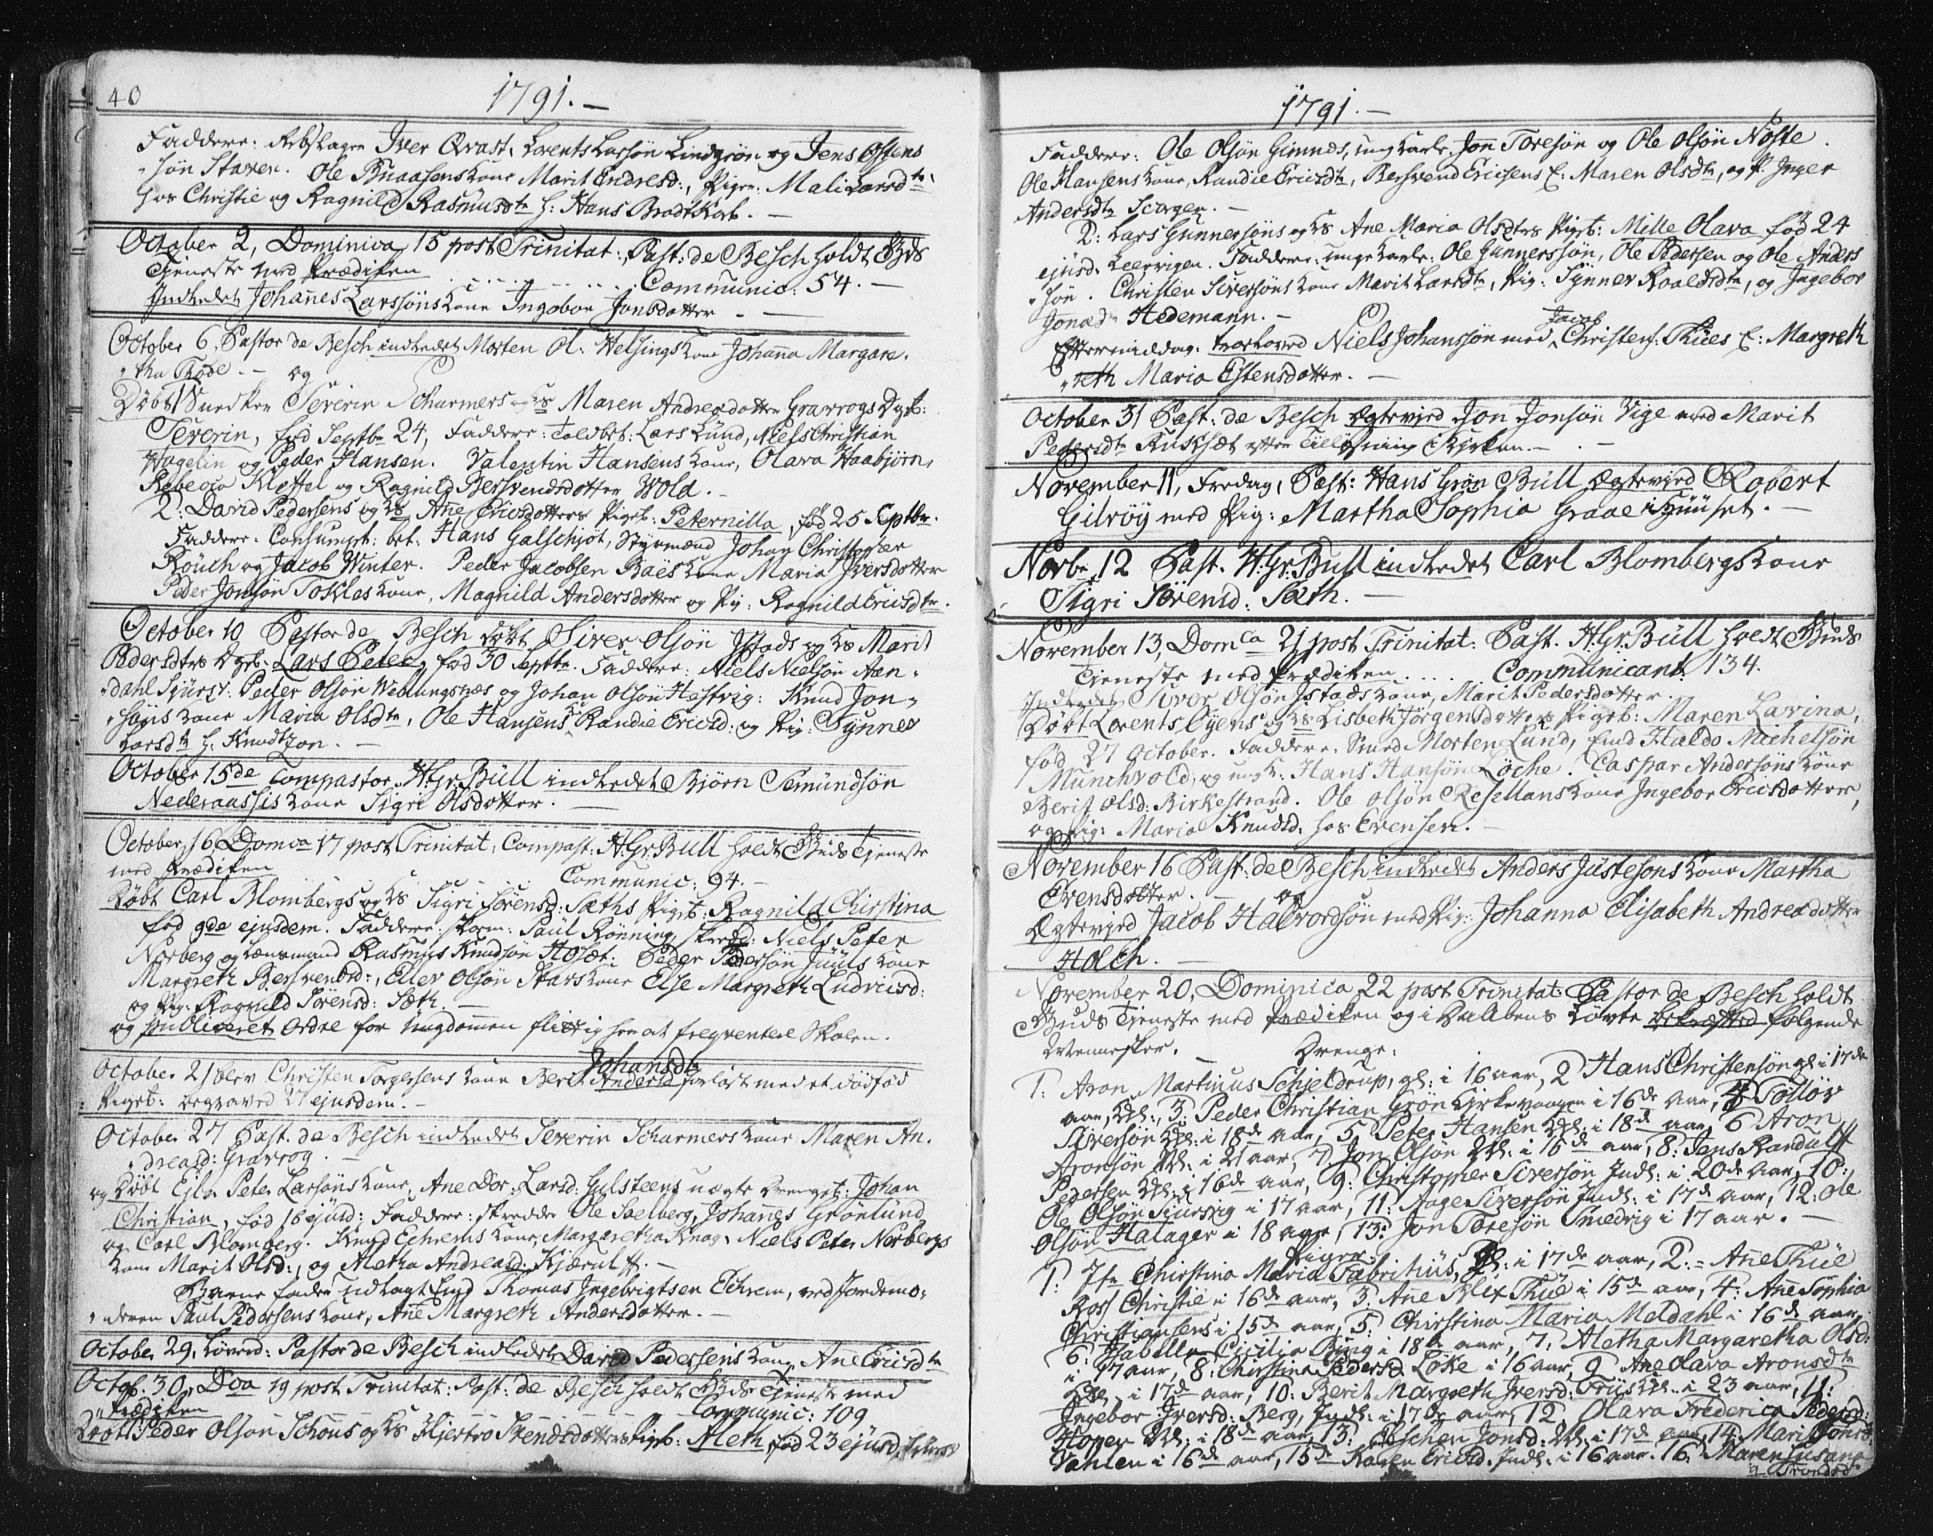 40
1791.—
Faddere: Arbskarn Iver Qvast, Lorents Larsøn Lindgrøn og Jens Ostens
søn Staven. Ole Knudsens kone Marit Endresd:, Pigen: Mali Larsdtr
hos Christie og Ragnild Rasmusdtr h: Hans Brodtkorb.—
October 2, Dominica 15 post Trinitat: Past: de Besch holdt Guds
Tjeneste med Prædiken ..... Communic: 54.—
Indledet Johannes Larsøns kone Ingebor Jonsdatter.—
October 6, Pastor de Besch indledet Morten Ol: Helsings kone Johanna Margare-
tha Thode.— og
Døbt Snedker Severin Scharmers og Hs Maren Andreædatter Gravrogs Dgb:
Severin, fød Septbr 24, Faddere: Toldbet: Lars Lund, Niels Christian
Hagelin og Peder Hansen. Valentin Hansens kone, Olava Haabjørn,
Rebecca Klettel og Ragnild Bersvendsdatter Wold.—
2: David Pedersens og Hs Ane Ericsdatters Pigeb: Peternilla, fød 25 Septbr.
Faddere: Consumpt: bet: Hans Galschjøt, Styrmænd Johan Christopher
Röuch og Jacob Winter. Peder Jacobsen Baës kone Maria Iversdatter
Peder Jonsøn Tokles kone, Magnild Andersdatter og Pig: Ragnild Ericsdtr.
October 10 Pastor de Besch døbt Siver Olsøn Ystads og Hs Marit
Pedersdtrs Dgb: Lars Peter, fød 30 Septbr. Faddere: Niels Nielsøn Aan-
dahl Sjurst: Peder Olsøn Weblungsnæs og Johan Olsøn Hestvig: Knud Jon-
søns kone Maria Olsdtr, Ole Hansens k: Randie Ericsd: og Pig: Synnev
Larsdtr h: Knudtzon.—
October 15de Compastor H. Gr: Büll indledet Bjørn Semundsøn
Nederaassis kone Sigri Olsdotter.—
October 16, Domca 17 post Trinitat, Compast: H. Gr: Büll holdt Guds Tjeneste
med Prædiken Communic: 94.—
Døbt Carl Blombergs og Hs Sigri Sörensd: Sæths Pigeb: Ragnild Christina
fød 9de ejusdem. Faddere: Paül Rönning, Skredd: Niels Peter
Norberg og Lænsmand Rasmus Knudsøn Hosæt: Peder Pedersøn Juuls kone
Margreth Bersvendsd:, Elev Olsøn Stavs kone Else Margreth Ludvicsd:
og Pig: Ragnild Sörensd: Sæth.—
og publiceret Ordre for Ungdommen flittig her at freqventere Skolen.
Johansdtr
October 21 blev Christen Torgersens kone Berit Andersd forløst med et dödfød
Pigeb: begraved 27 ejusdem.—
October 27 Past. de Besch indledet Severin Scharmers kone Maren An-
dreæd: Gravrog.—
og Døbt Ejler Peter Larsøns kone, Ane Dor: Larsd: Gulsteens uægte Drengeb: Johan
Christian, fød 16 ejusd: Faddere: Skredder Ole Solberg, Johannes Grønlund
og Carl Blomberg. Knud Echrems kone, Margaretha Knag, Niels Peter Norbergs
kone Marit Olsd:, og Aletha Andreæd: Kjærulff.—
Barnefader udlagt Knud Thomas Ingebrigtsen Echrem, ved Jordemo-
deren Paul Pedersens kone, Ane Margreth Andersdotter.—
October 29, Løverd: Pastor de Besch indledet David Pedersens kone Ane Ericsdtr
Octob. 30, Dca 19 post Trinitat: Past: de Besch holdt Guds Tjeneste med
Prædiken Communic: 109
Døbt Peder Olsøn Schous og Hs Kjersto Svendsdotters Pigb: Aleth, fød 23 ejusd,
1791.—
Faddere: Ole Olsøn Gimnæs, ung karle, Jon Toresøn og Ole Olsøn Nøste.
Ole Hansens kone, Randie Ericsdtr, Bersvend Ericsens k: Maren Olsdtr, og P. Inger
Andersdtr Scorgen.—
2: Lars Gunnersøns og Hs Ane Maria Olsdtrs Pigeb: Mille Olava fød 24
ejusd: Leervigen. Faddere: unge karle: Ole Gunnersøn, Ole Pedersen og Ole Anders
søn. Christen Siversøns kone Marit Larsdtr, Pig: Synnev Roaldsdtr, og Ingebor
Jonædtr Hedemann.—
Jacob
Eftermiddag: troloved Niels Johansøn med Christens: Thües E: Margreth
reth Maria Estensdotter.—
October 31 Past: de Besch ægtevied Jon Jonsøn Vige med Marit
Pedersdtr Rusesæt efter Tillysning i Kirken.—
November 11, Fredag, Past: Hans Grøn Büll ægtevied Robert
Gilröy med Pig: Martha Sophia Graae i Huuset.—
Novbr 12 Past. H: Gr: Bull indledet Carl Blombergs kone
Sigri Sörensd: Sæth.—
November 13, Domca 21 post Trinitat: Past. H. Gr: Büll holdt Guds
Tjeneste med Prædiken .... Communicant: 134
Indledet Siver Olsøn Istads kone, Marit Pedersdotter.
Døbt Lorents Oyens og Hs Lisbeth Jörgensdotters Pigeb: Maren Lavina,
fød 27 October. Faddere: Smed Morten Lund, Knud Haldo Michelsøn
Munchvold, og ungk: Hans Hansøn Löche. Caspar Andersøns kone
Berit Olsd: Birkestrand. Ole Olsøn Resellans kone Ingebor Ericsdotter,
og Pig: Maria Knudsd: hos Evensen.—
November 16 Past: de Besch indledet Anders Justesons kone Martha
Evensdotter.— og
Ægtevied Jacob Halvordsøn med Pig: Johanna Elisabeth Andreædotter
Holch.—
November 20, Dominica 22 post Trinitat: Pastor de Besch holdt
Guds Tjeneste med Prædiken og i Daabens Løvte bekræfted følgende
Mennesker.— Drenge:
1: Aron Martinus Schjeldrup, gl: i 16 aar, 2 Hans Christensøn gl: i 17de
aar, 3: Peder Christian Grön Kirkevaagen i 16de aar, 4: Tolløv
Siversøn i 18de aar, 5: Peter Hansen i 18de aar, 6 Aron
Aronsøn i 21 aar, 7 Jon Olsøn i 16de aar, 8: Jens Randulff
Pedersen i 16de aar, 9: Christopher Siversøn Indl: i 20de aar, 10:
Ole Olsøn Siursvig i 17 aar, 11: Aage Siversøn Indl: i 17de aar, 12: Ole
Olsøn Halager i 18 aar, 13: Jon Toresøn Smedvig i 17 aar.—
Piger
1: Jfr Christina Maria Fabritius, gl: i 17de aar, 2: Ane Thüe
Ross Christie i 16de aar, 3: Ane Blix Thüe i 15de aar, 4: Ane Sophia
Christiansens i 15de aar, 5: Christina Maria Moldahl i 16de aar,
6: Isabella Cicilia Bing i 18de aar, 7: Aletha Margaretha Olsd:
i 17 aar, 8: Christina Pedersd Løke i 16 aar, 9 Ane Olava Aronsdtr
i 17de aar, 10: Berit Margreth Iversd: Friis i 23 aar, 11:
Ingebor Iversd: Berg, Indl: i 17de aar, 12 Olava Frederica Pedersd:
Hopen i 18de aar, 13: Jonsd: i 17de aar, 14: Marit Jonsd:
Vahlen i 16de aar, 15de Karen Ericsd: Indl: i 16 aar. 16: Maren Susana